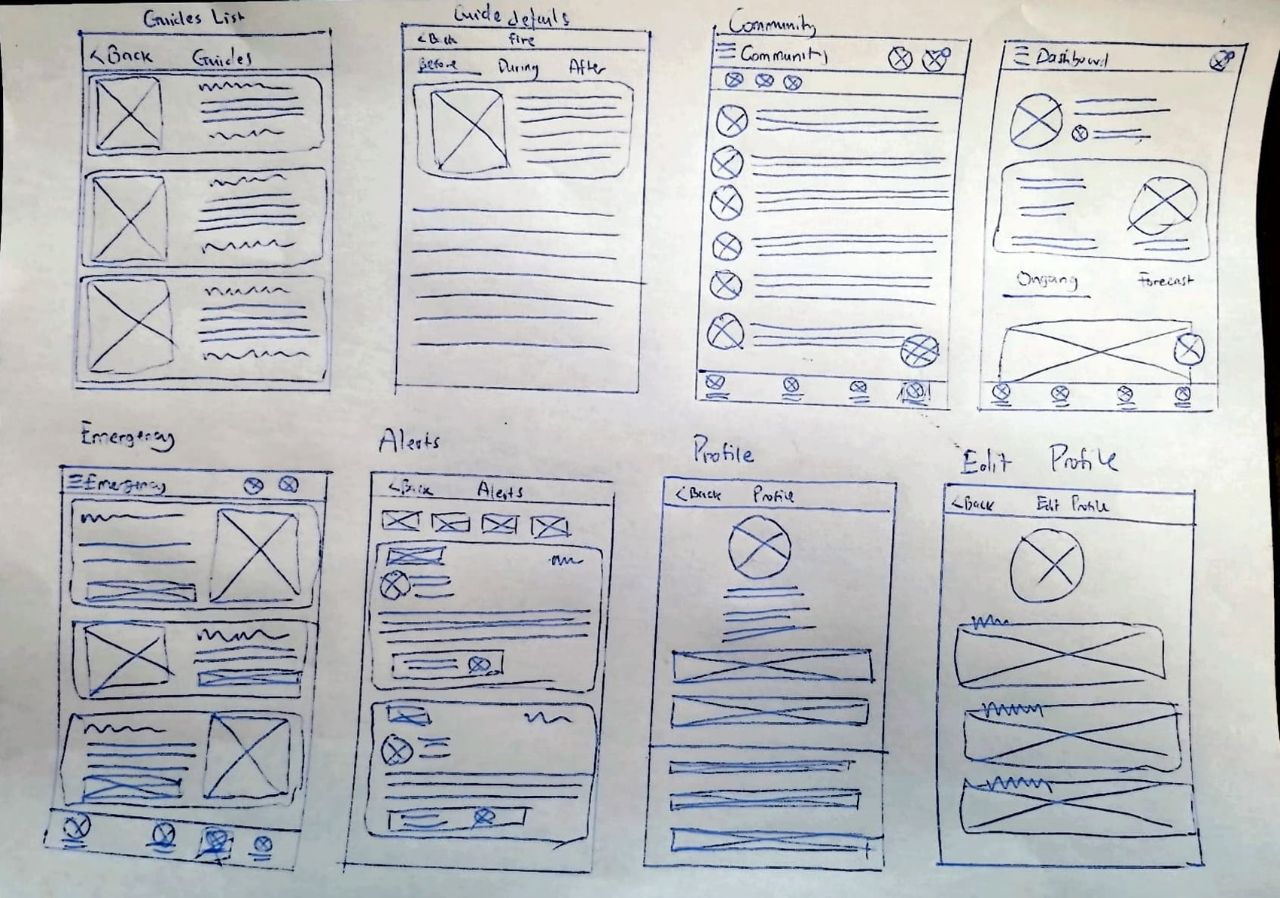 Guides List
< Back Guides
Guide details
< Back fire
Before During After
Community
Community
Dashboard
Ongoing Forecast
Emergency
Emergency
Alerts
< Back Alerts
Profile
< Back Profile
Edit Profile
< Back Edit Profile